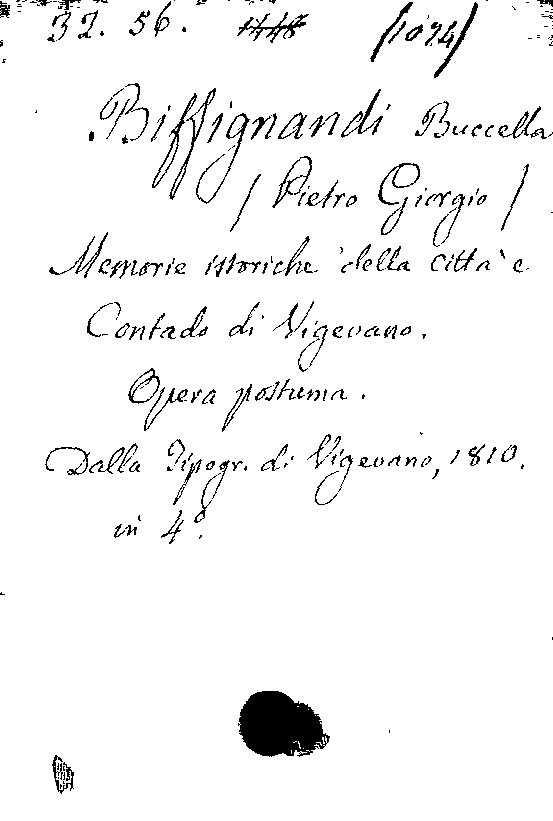 32. 56. 1448 (1074)
Biffignandi Buccella
/ Pietro Giorgio /
Memorie istoriche della città e
Contado di Vigevano.
Opera postuma.
Dalla Tipogr. di Vigevano, 1810.
in 4º.